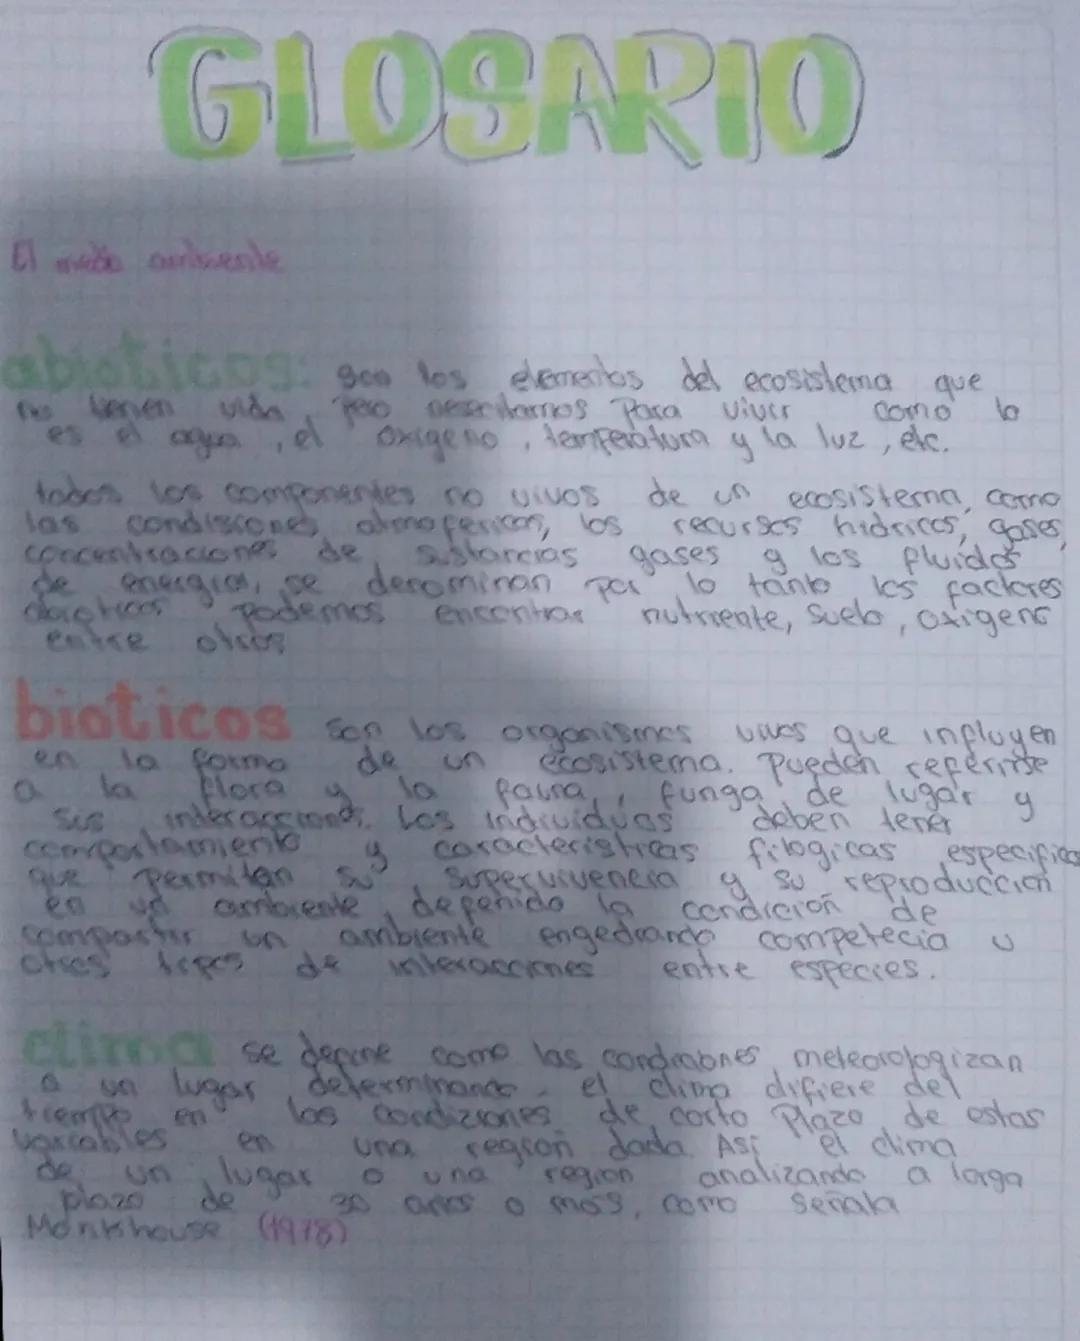 GLOSARIO
El medio ambiente
abioticos: son los elementos del ecosistema que
no tienen vida, pero nesecitamos para vivir como lo
es el agua, el oxigeno, temperatura y la luz, etc.
todos los componentes no vivos de un ecosistema, como
las condisiones atmofericas, los recursos hidricos, gases,
concentraciones de sustancias gases y los fluidos
de energias, se denominan por lo tanto los factores
podemos encontrar nutriente, suelo, oxigeno
entre otros
bioticos son los organismos vivos que influyen
en la forma de un ecosistema. Pueden referirse
a la flora y la fauna, funga de lugar y
sus interacciones. Los individuos deben tener
comportamiento y caracteristicas filogicas especificas
que permitan su supervivencia y su reproduccion
en un ambiente, depenido la condicion de
compartir un ambiente engedrando competecia u
otros tipos de interacciones entre especies.
clima se define como las condiciones meteorologizan
a un lugar determinando. el clima difiere del
tiempo en las condiziones de corto Plazo de estas
variables en una region dada. Asi el clima
de un lugar o una region analizando a larga
plazo de 30 años o mas, como señala
Monkhouse (1978)